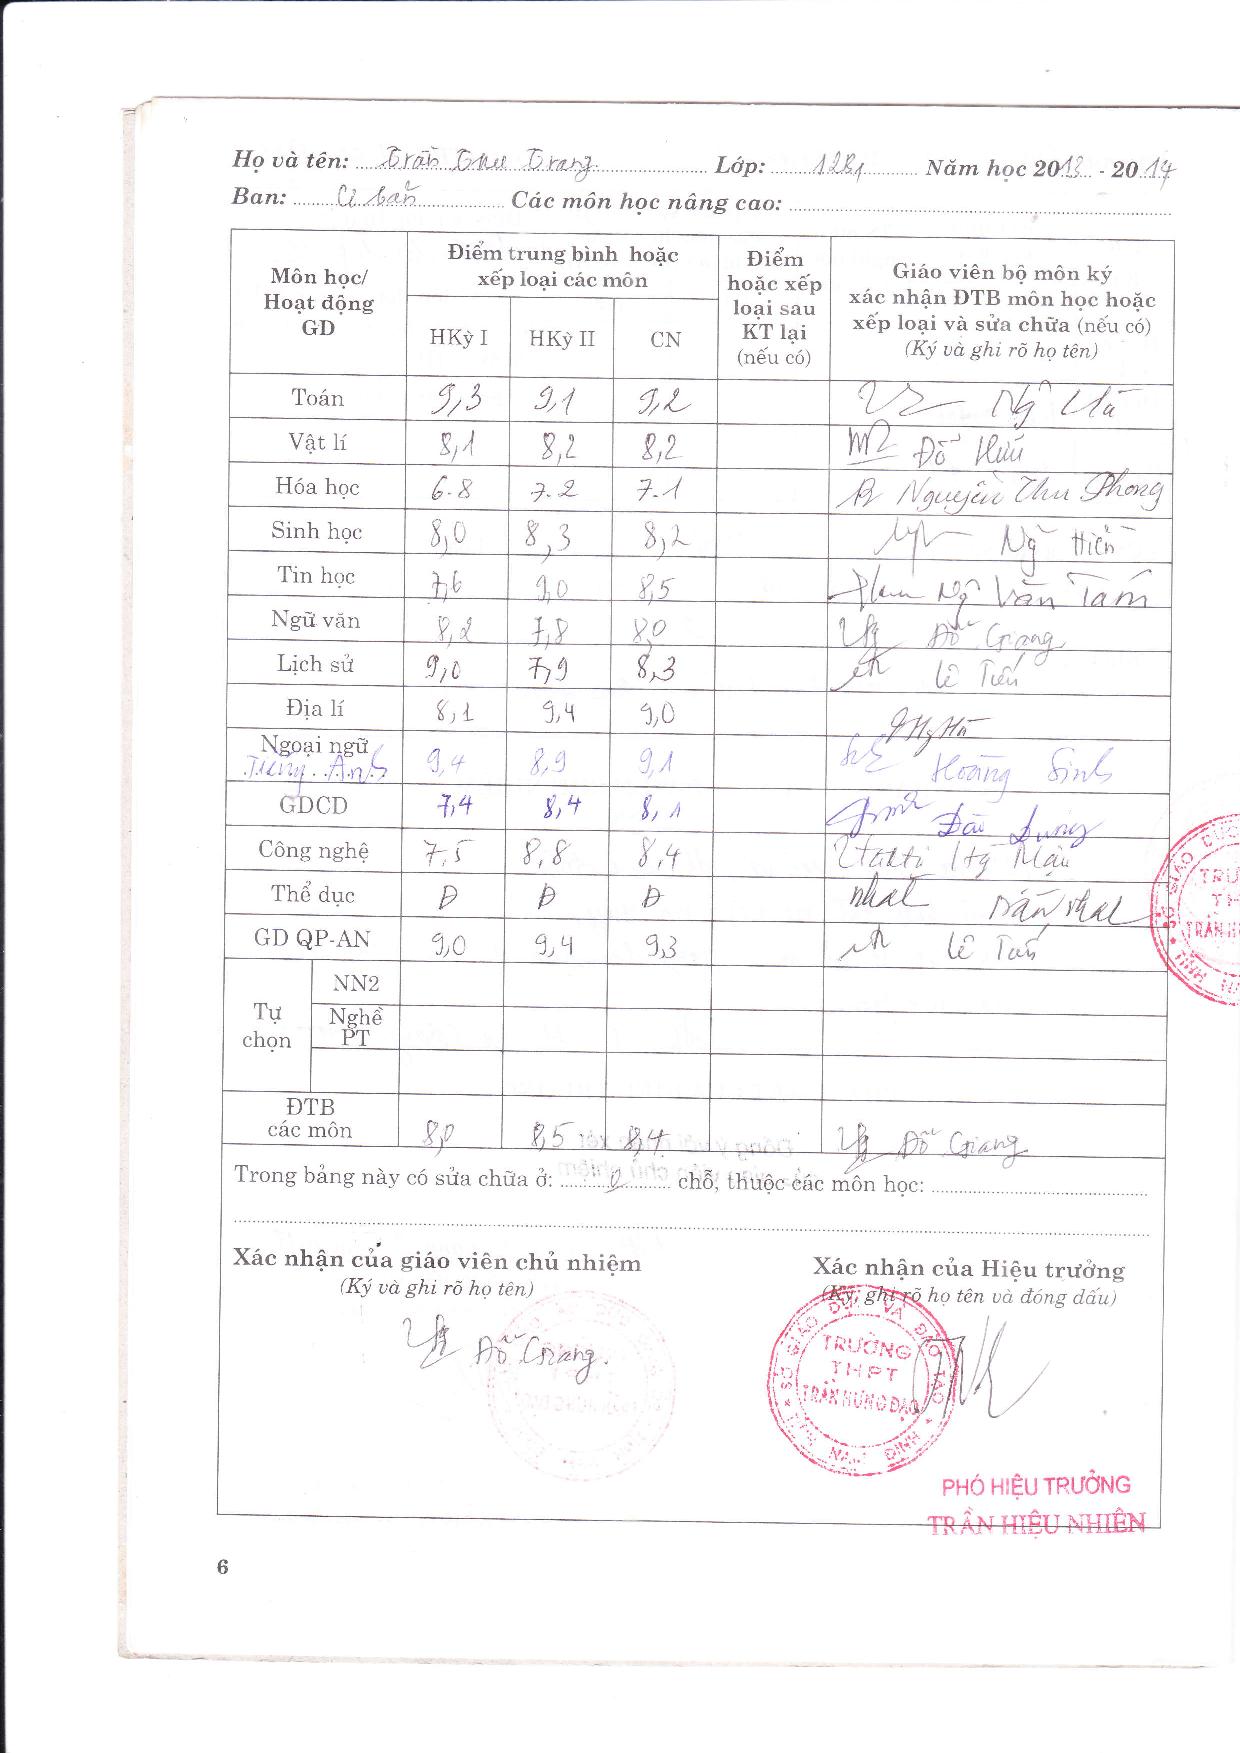 Họ và tên: Trần Thu Trang Lớp: 12B1 Năm học 2013 - 2014
Ban: Cơ bản Các môn học nâng cao:
Môn học/ Hoạt động GD
Điểm trung bình hoặc xếp loại các môn
Điểm hoặc xếp loại sau KT lại (nếu có)
Giáo viên bộ môn ký xác nhận ĐTB môn học hoặc xếp loại và sửa chữa (nếu có)
(Ký và ghi rõ họ tên)
HKỳ I HKỳ II CN
Toán 9,3 9,1 9,2 Ng Hà
Vật lí 8,1 8,2 8,2 Đỗ Hữu
Hóa học 6.8 7.2 7.1 Nguyễn Thu Phong
Sinh học 8,0 8,3 8,2 Ng Hiền
Tin học 7,6 9,0 8,5 Ngô Văn Tâm
Ngữ văn 8,2 7,8 8,0 Đỗ Giang
Lịch sử 9,0 7,9 8,3 Lê Tiến
Địa lí 8,1 9,4 9,0
Ngoại ngữ Tiếng Anh 9,4 8,9 9,1 Hoàng Sinh
GDCD 7,4 8,4 8,1 Đào Dung
Công nghệ 7,5 8,8 8,4 Mậu
Thể dục Đ Đ Đ
GD QP-AN 9,0 9,4 9,3 Lê Tiến
Tự chọn
NN2
Nghề PT
ĐTB các môn 8,0 8,5 8,4 Đỗ Giang
Trong bảng này có sửa chữa ở: 0 chỗ, thuộc các môn học:
Xác nhận của giáo viên chủ nhiệm Xác nhận của Hiệu trưởng
(Ký và ghi rõ họ tên) (Ký, ghi rõ họ tên và đóng dấu)
Đỗ Giang.
SỞ GIÁO DỤC VÀ ĐÀO TẠO
TRƯỜNG
THPT
TRẦN HƯNG ĐẠO
PHÓ HIỆU TRƯỞNG
TRẦN HIỆU NHIÊN
6